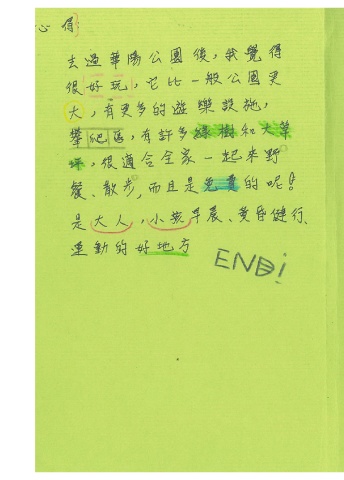 心得
去過華陽公園後，我覺得
很好玩，它比一般公園更
大，有更多的遊樂設施，
攀爬區，有許多綠樹和大草
坪，很適合全家一起來野
餐、散步，而且是免費的呢！
是大人，小孩早晨、黃昏健行、
運動的好地方
END!